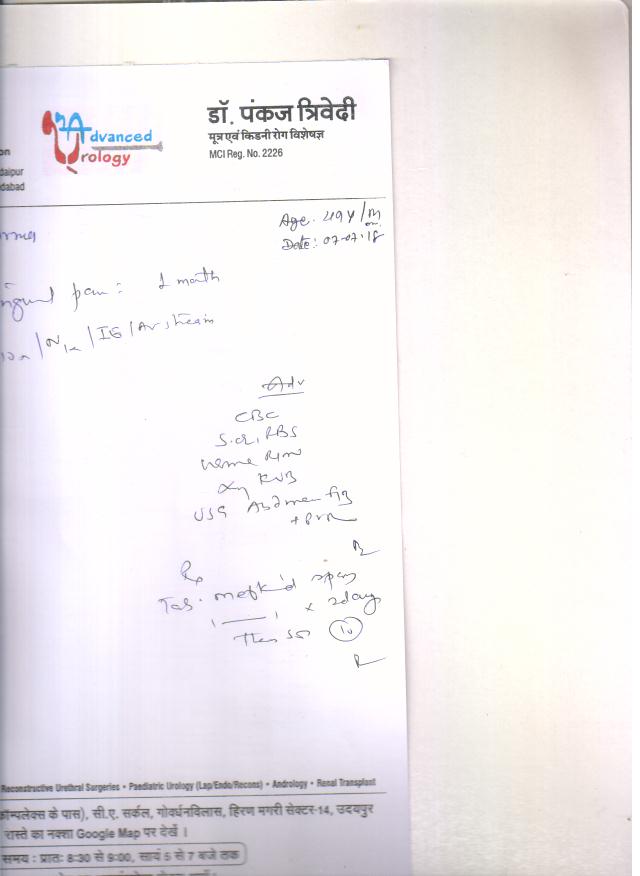 Advanced
Urology
डॉ. पंकज त्रिवेदी
मूत्र एवं किडनी रोग विशेषज्ञ
MCI Reg. No. 2226
on
daipur
dabad
Age. 49 Y/M
Date: 07-07-18
pain : 1 month
Adv
CBC
S.Cr, RBS
Urine R/M
Xray KUB
USG Abdomen
+ PVR
Rx
Tab. Meftid spas
1 —— 1 x 2days
then SOS 10
Reconstructive Urethral Surgeries • Paediatric Urology (Lap/Endo/Recons) • Andrology • Renal Transplant
कॉम्पलेक्स के पास), सी.ए. सर्कल, गोवर्धनविलास, हिरण मगरी सेक्टर-14, उदयपुर
रास्ते का नक्शा Google Map पर देखें ।
समय : प्रातः 8:30 से 9:00, सायं 5 से 7 बजे तक